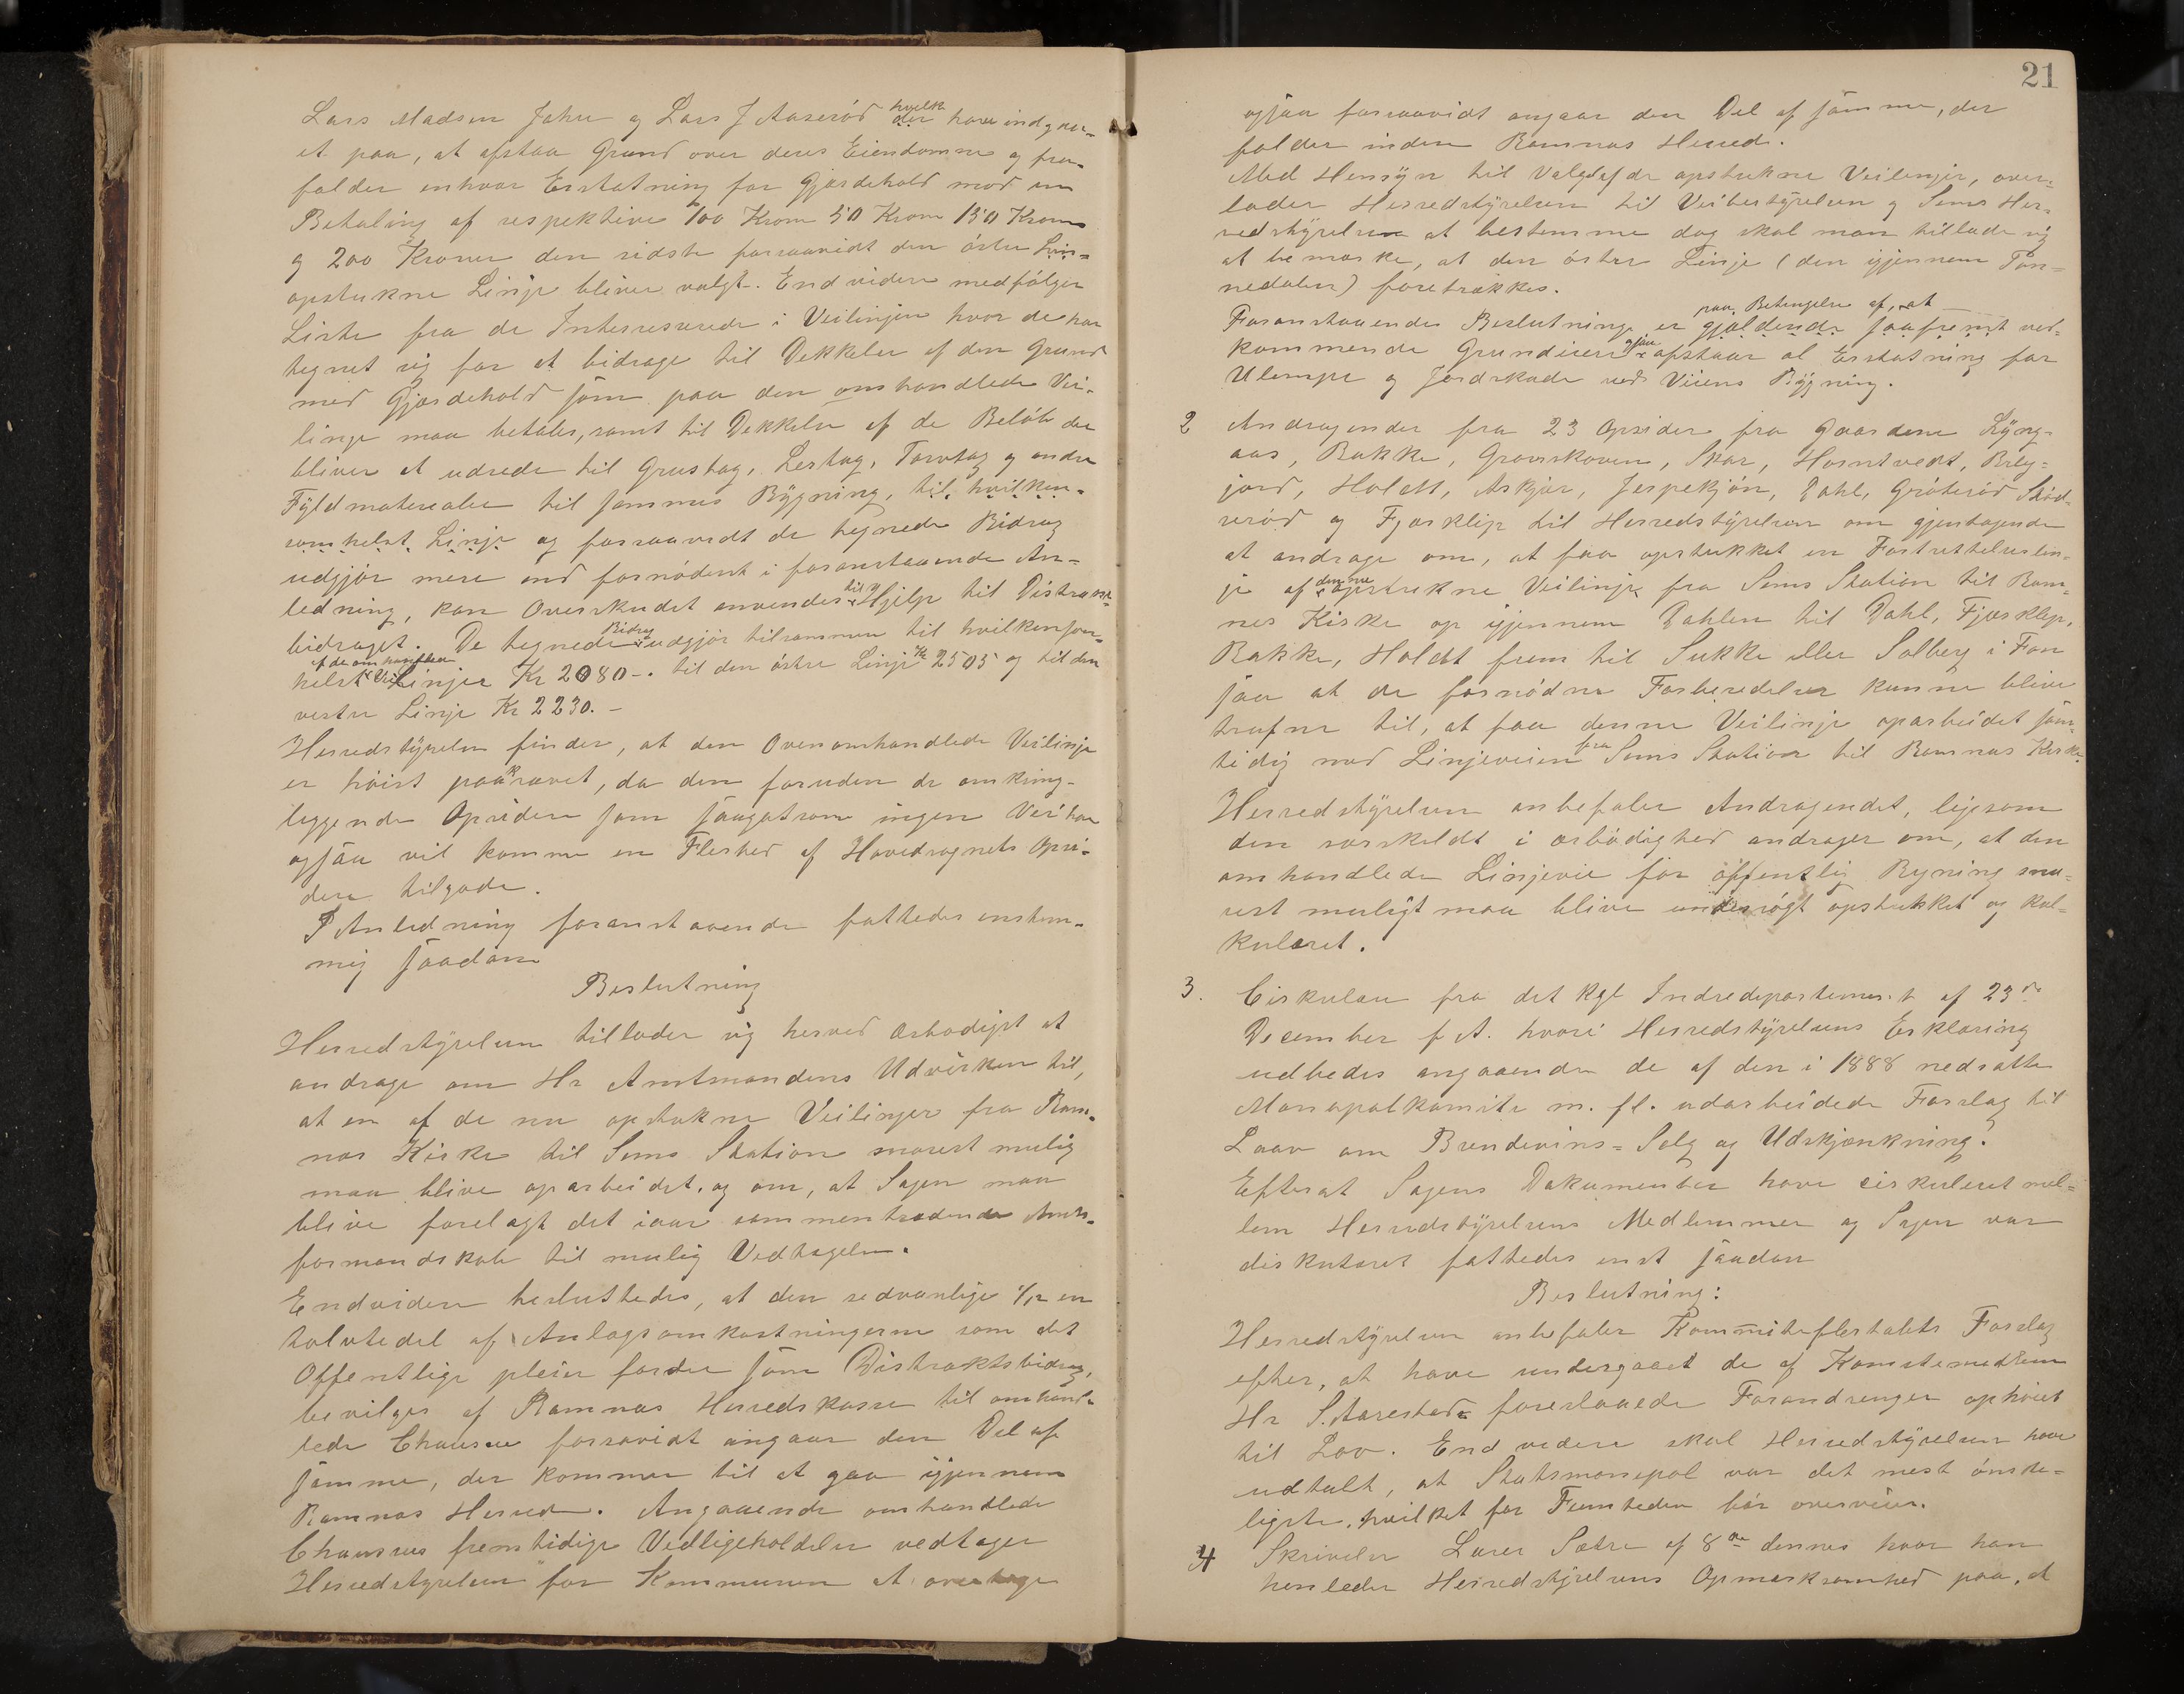 Lars Madsen Jahre og Lars J Aaserød hvilke der have indgaa-
et paa, at afstaa Grund over deres Eiendomme og fra-
falder enhver Erstatning for Gjærdehold mod en
Betaling af respektive 100 Kroner 50 Kroner 150 Kroner
og 200 Kroner den sidste forsaavidt den østre
opstukne Linje bliver valgt. Endvidere medfølger
Liste fra de Interesserede i Veilinjen hvor de har
tegnet sig for at bidrage til Dekkelse af den Grund
med Gjærdehold som paa den omhandlede Vei-
linje maa betales, samt til Dekkelse af de Beløb der
bliver at udrede til Grustag, Lertag, Torvtag og andre
Fyldmaterialer til sammes Bygning, til hvilken-
somhelst Linje og forsaavidt de tegnede Bidrag
udgjør mere end fornødent i foranstaaende An-
ledning, kan Overskudet anvendes til Hjelp til Distrikts-
bidraget. De tegnede Bidrag udgjør tilsammen til hvilkensom-
helst af de omhandlede Veilinjer Kr 2080-. til den østre Linje Kr 2505 og til den
vestre Linje Kr 2230.-
Herredstyrelsen finder, at den Ovenomhandlede Veilinje
er høist paakrævet, da den foruden de omkring-
liggende Opsidere som saagatsom ingen Vei har
ogsaa vil komme en Flerhed af Hovedsognets Opsi-
dere tilgode.
I Anledning foranstaaende fattedes enstem-
mig saadan
Beslutning
Herredstyrelsen tillader sig herved ærbødigst at
andrage om Hr Amtmandens Udvirken til,
at en af de nu opstukne Veilinjer fra Ram-
næs Kirke til Sems Station snarest mulig
maa blive oparbeidet, og om, at Sagen maa
blive forelagt det iaar sammentrædende Amts-
formandskab til mulig Vedtagelse.
Endvidere besluttedes, at den sedvanlige 1/12 en
tolvtedel af Anlægsomkostningerne som det
Offentlige pleier fordre som Distriktsbidrag,
bevilges af Ramnæs Herredskasse til omhand-
lede Chausee forsavidt angaar den Del af
samme, der kommer til at gaa igjennem
Ramnæs Herred. Angaaende omhandlede
Chausees fremtidige Vedligeholdelse vedtager
Herredstyrelsen for Kommunen at overtage
21
ogsaa forsaavidt angaar den Del af samme, der
falder inden Ramnæs Herred.
Med Hensyn til Valg af de opstukne Veilinjer, over-
lader Herredstyrelsen til Veibestyrelsen og Sems Her-
redstyrelse at bestemme dog skal man tillade sig
at bemærke, at den østre Linje (den igjennem Tøn-
nedalen) foretrækkes.
Foranstaaende Beslutning er gjældende paa Betingelse af, at saafremt ved-
kommende Grundeiere ogsaa afstaar al Erstatning for
Ulempe og Jordskade ved Veiens Bygning.
2 Andragender fra 23 Opsidere fra Gaardene Lyng-
aas, Bakke, Gravskoven, Skar, Horntvedt, Brey-
jord, Holdt, Askjær, Jerpekjøn, Dahl, Grøterød Skød-
nerød og Fjærklep til Herredstyrelsen om gjentagende
at andrage om, at faa opstukket en Fortsættelseslin-
je af den nu opstukne Veilinje fra Sems Station til Ram-
nes Kirke op igjennem Dahlen til Dahl, Fjærklep,
Bakke, Holdt frem til Sukke eller Solberg i Fon
saa at de fornødne Forberedelser kunne blive
trufne til, at faa denne Veilinje oparbeidet sam-
tidig med Linjeveien fra Sems Station til Ramnæs Kirke.
Herredstyrelsen anbefaler Andragendet, ligesom
den særskildt i ærbødighed andrager om, at den
omhandlede Linjevei for offentlig Regning sna-
rest muligt maa blive undersøgt opstukket og kal-
kuleret.
3. Cirkulær fra det Kgl Indredepartement af 23de
December f A. hvori Herredstyrelsens Erklæring
udbedes angaaende de af den i 1888 nedsatte
Monopolkomite m. fl. udarbeidede Forslag til
Laav om Brendevins-Salg og Udskjænkning.
Efterat Sagens Dokumenter have cirkuleret mel-
lem Herredstyrelsens Medlemmer og Sagen var
diskuteret fattedes enst saadan
Beslutning:
Herredstyrelsen anbefaler Kommiteflertalets Forslag
efter, at have undergaaet de af Komitemedlem
Hr S. Aarestad foreslaaede Forandringer ophøiet
til Lov. Endvidere skal Herredstyrelsen have
udtalt, at Statsmonopol var det mest ønske-
ligste, hvilket for Fremtiden bør overveies.
4 Skrivelse Lærer Sætre af 8de dennes hvor han
henleder Herredstyrelsens Opmerksomhed paa, at